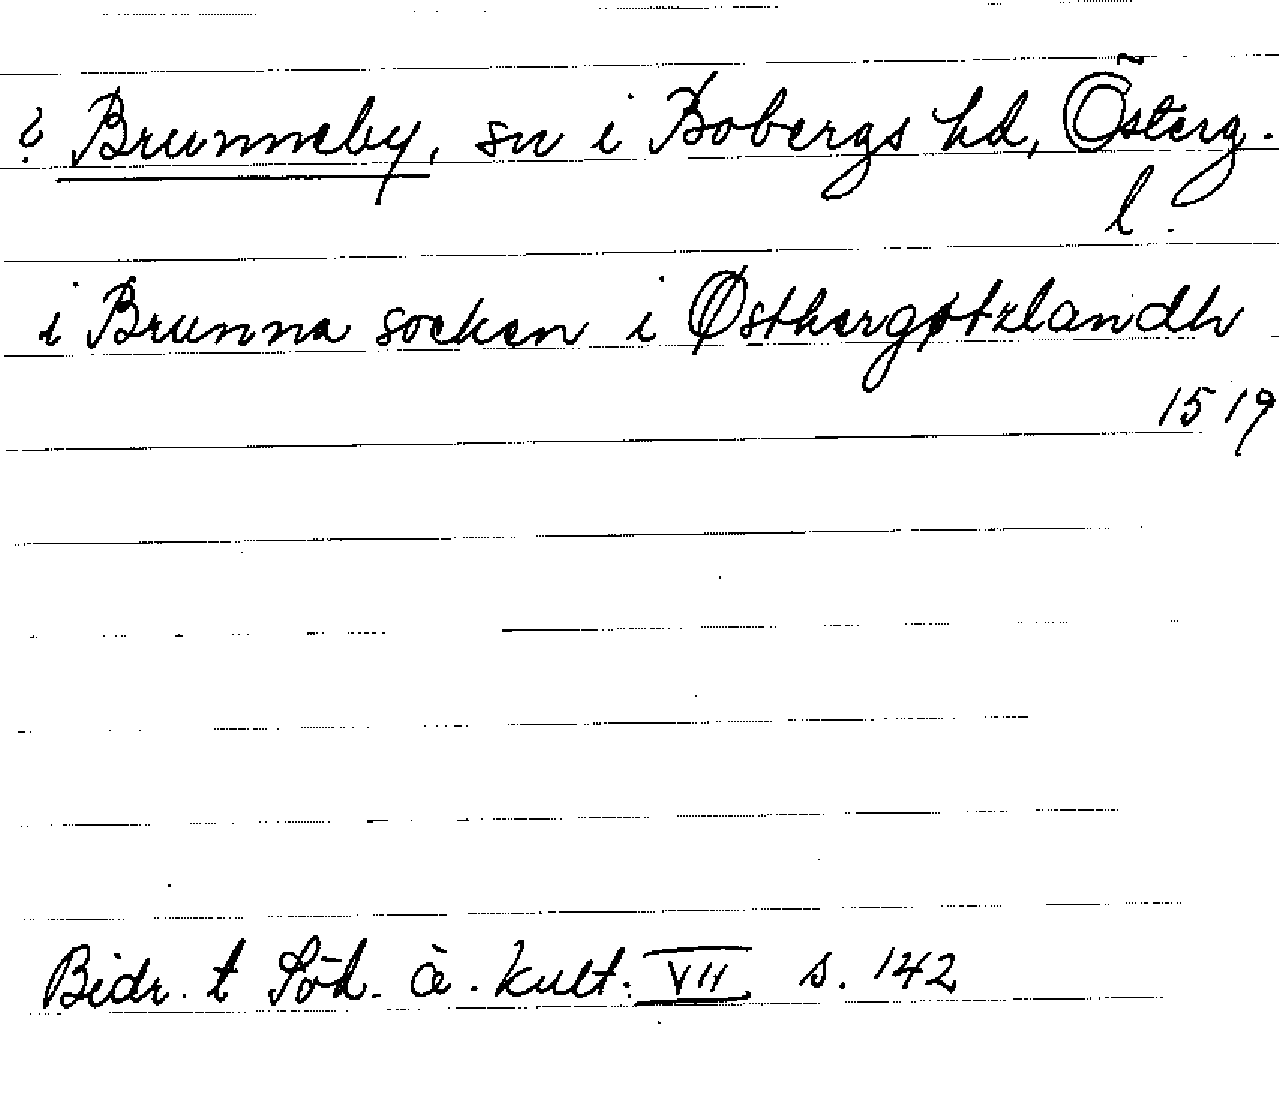 ? Brunneby, sn i Bobergs hd, Österg.
l.
i Brunna socken i Østhergøtzlandh
1519
Bidr. t Söd. ä. kult. VII s. 142